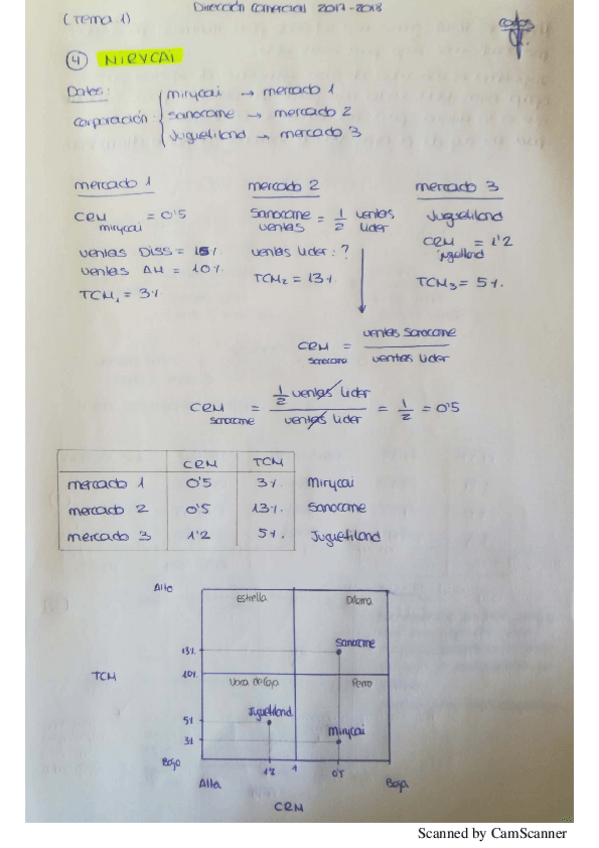 (Tema 1)
Dirección Comercial 2017-2018
④ MIRYCAI
Datos:
Corporación:
mirycai → mercado 1
Sanocame → mercado 2
Juguetiland → mercado 3
mercado 1
CRM mirycai = 0'5
ventas DISS = 15%
ventas AM = 10%
TCM₁ = 3%
mercado 2
Sanocame ventas = 1/2 ventas líder
ventas líder: ?
TCM₂ = 13%
mercado 3
Juguetiland
CRM = 1'2
TCM₃ = 5%
CRM Sanocame = ventas Sanocame / ventas líder
CRM Sanocame = 1/2 ventas líder / ventas líder = 1/2 = 0'5
CRM TCM
mercado 1 0'5 3% Mirycai
mercado 2 0'5 13% Sanocame
mercado 3 1'2 5% Juguetiland
Alto
Estrella
Dilema
13%
Sanocame
TCM
10%
Vaca de Caja
Perro
5%
Juguetiland
3%
Mirycai
Bajo
1'2 1 0'5
Alta
Baja
CRM
Scanned by CamScanner